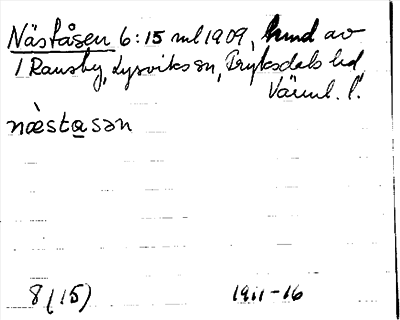 Nåståsen 6:15 ml 1909, hmd av
1 Ransby, Lysviks sn, Fryksdals hd,
Värml. l.
næ̀stasən
8 (15) 1911-16